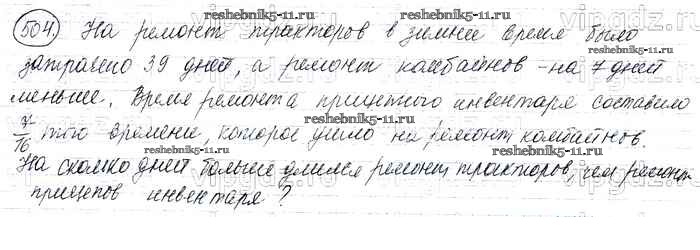 reshebnik5-11.ru
504. На ремонт тракторов в зимнее время было
затрачено 39 дней, а ремонт комбайнов - на 7 дней
меньше. Время ремонта прицепного инвентаря составило
7/16 того времени, которое ушло на ремонт компайнов.
На сколько дней больше длился ремонт тракторов, чем ремонт
прицепов инвентаря?
reshebnik5-11.ru
reshebnik5-11.ru
vipgdz.ru